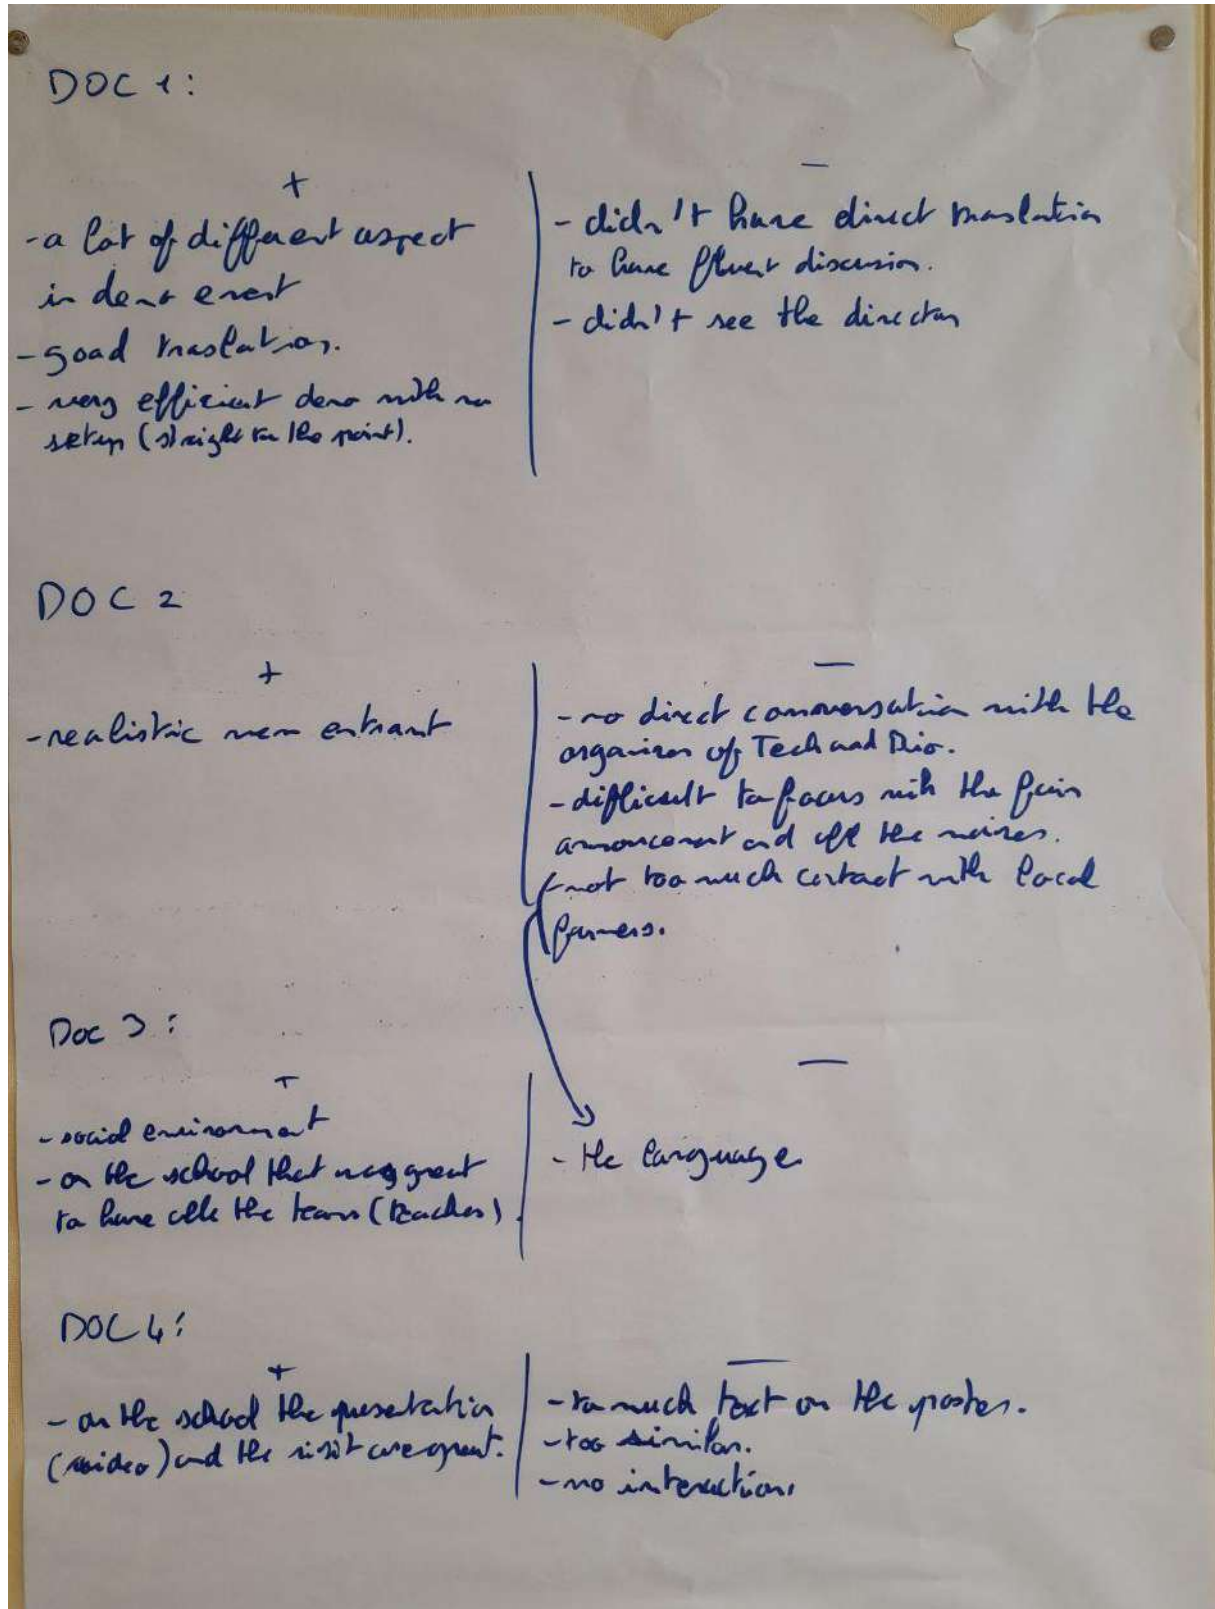 DOC 1:
+
- a lot of different aspect
in demo event
- good traslation.
- very efficient demo with no
setup (straight to the point).
—
- didn't have direct traslation
to have fluent discussion.
- didn't see the director
DOC 2
+
- realistic new entrant
—
- no direct commversation with the
organiser of Tech and Bio.
- difficult to focus with the fair
announcement and all the noises.
- not too much contact with local
farmers.
Doc 3:
+
- social environment
- on the school that was great
to have all the team (teacher).
—
- the language
DOC 4:
+
- on the school the presentation
(video) and the visit are great.
—
- to much text on the poster.
- too similar.
- no interaction.